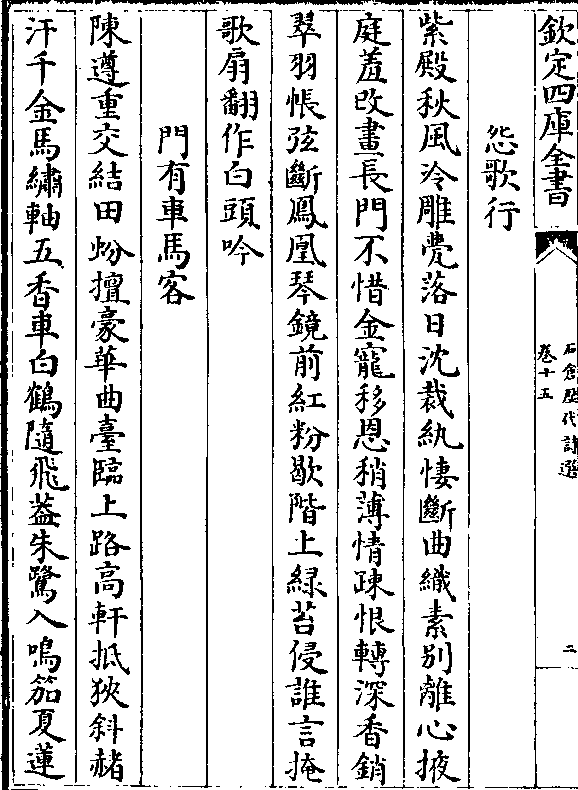 欽定四庫全書
石倉歷代詩選
卷十五
二
怨歌行
紫殿秋風冷雕甍落日沈裁紈悽斷曲織素别離心掖
庭羞改畫長門不惜金寵移恩稍薄情疎恨轉深香銷
翠羽帳弦斷鳳凰琴鏡前紅粉歇階上緑苔侵誰言掩
歌扇翻作白頭吟
門有車馬客
陳遵重交結田蚡擅豪華曲臺臨上路高軒抵狹斜赭
汗千金馬繡軸五香車白鶴隨飛葢朱鷺入鳴笳夏蓮